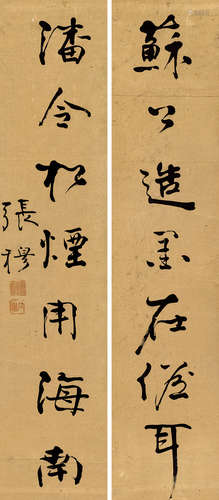 蘇公造墨在儋耳
潘令松煙用海南
張穆